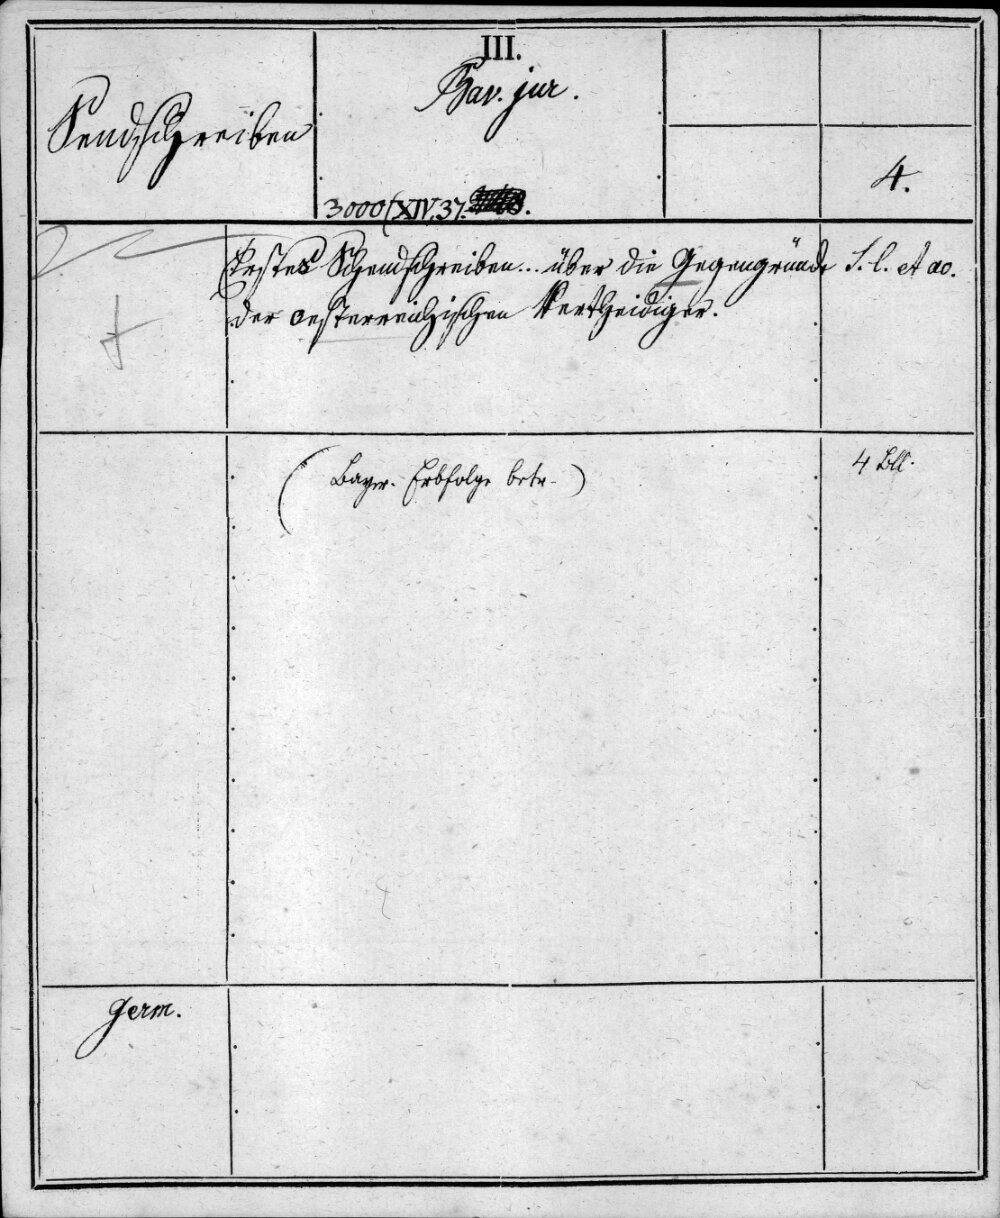 III.
Bav. jur.
Sendschreiben
4.
3000/XIV,37.
Erstes Schendschreiben... über die Gegengründe
S. l. et ao.
der oesterreichischen Vertheidiger.
(Bayer. Erbfolge betr.)
4 Bll.
Germ.